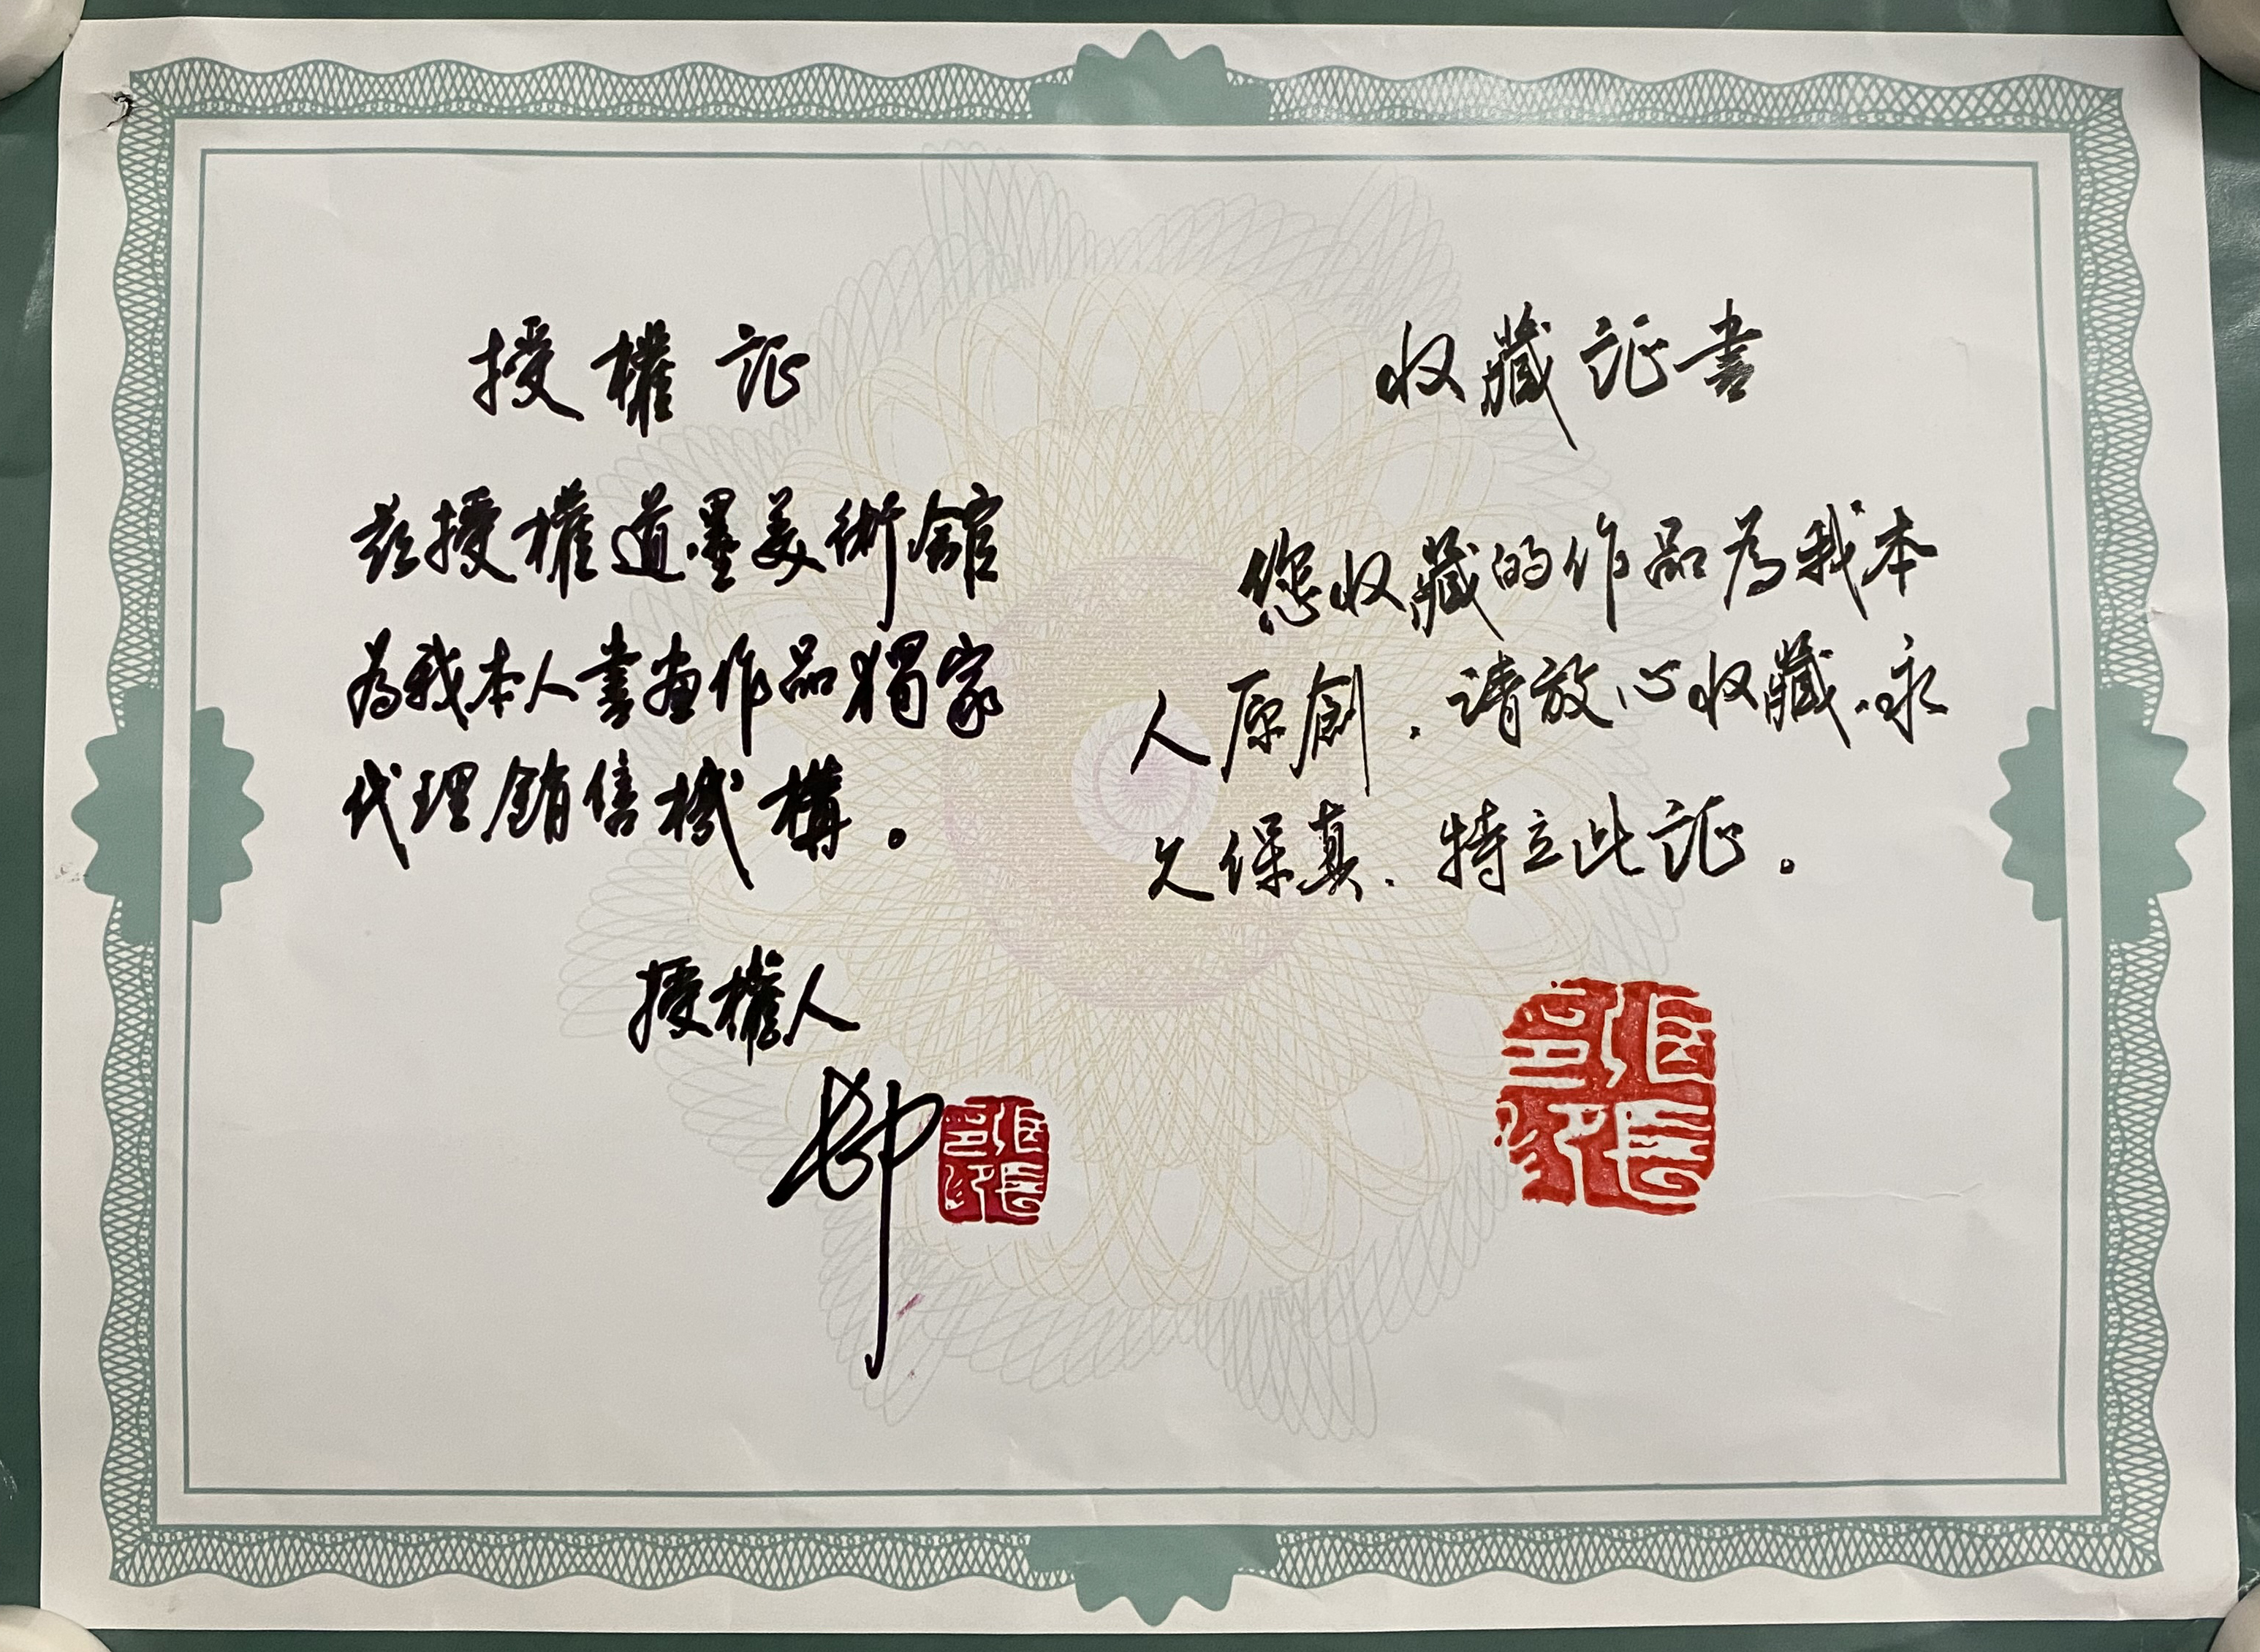 授權证
兹授權道墨美術館
為我本人書画作品獨家
代理銷售機構。
授權人
收藏证書
您收藏的作品為我本
人原創.请放心收藏.永
久保真.特立此证。